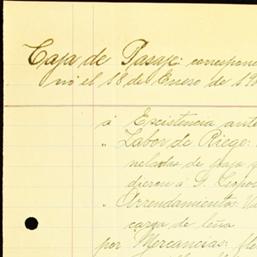 Caja de Pasaje: correspon
el 18 de Enero de 19
á Excistencia ante
" Labor de Riego:
neladas de paja
dieron á S.
" Arrendamiento: Va
carga de leña
por Mercancias: fle